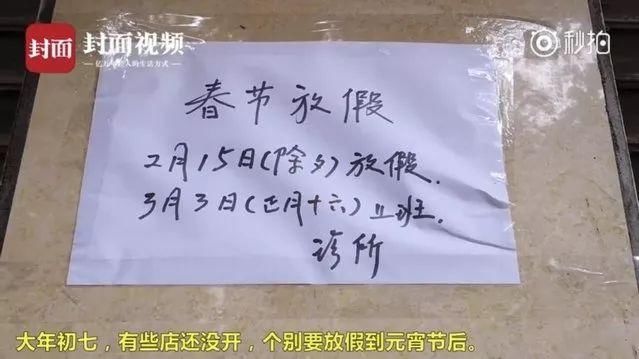 封面 封面视频
亿万年轻人的生活方式
秒拍
春节放假
2月15日(除夕)放假.
3月3日(正月十六)上班.
诊所
大年初七，有些店还没开，个别要放假到元宵节后。